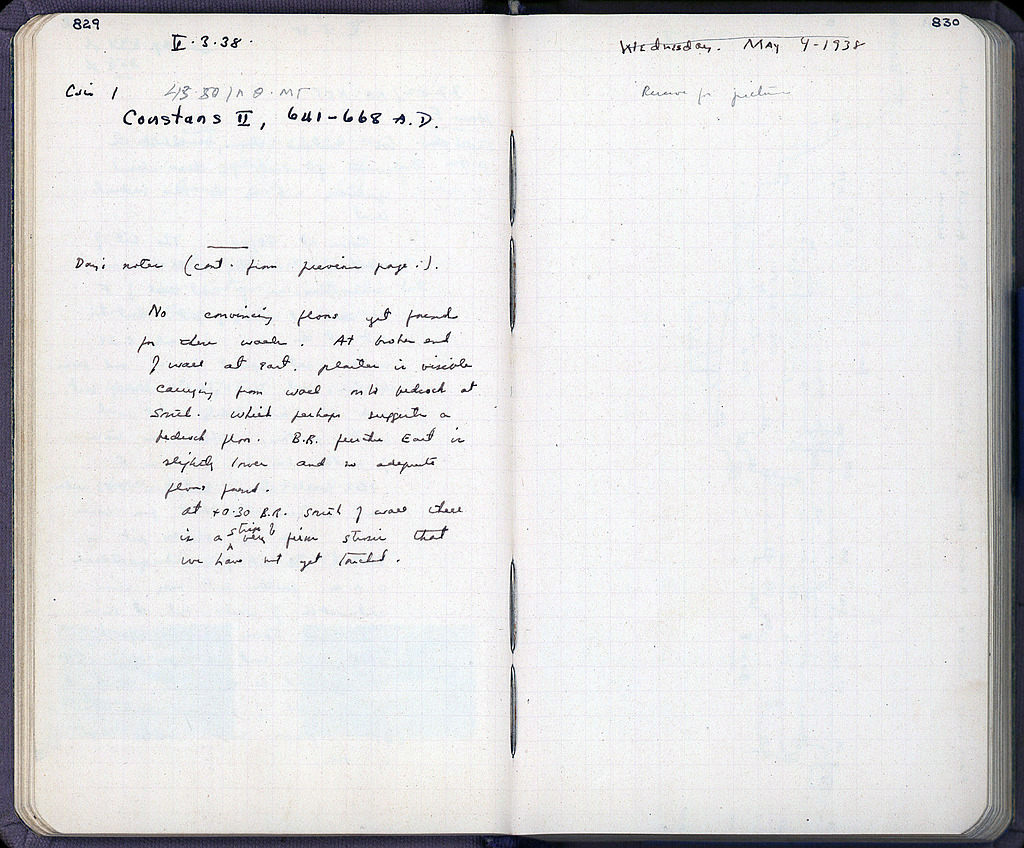 829
V·3·38·
Coin 1
Constans II, 641-668 A.D.
Day's notes (cont. from previous page:).
No convincing floors yet found
for these walls. At broken end
of wall at East, plaster is visible
carrying from wall onto bedrock at
South. Which perhaps suggests a
bedrock floor. B.R. further East is
slightly lower and no adequate
floors found.
at +0.30 B.R. South of wall there
is a strip of very firm strosis that
we have not yet touched.
830
Wednesday. May 4-1938
Reserve for picture